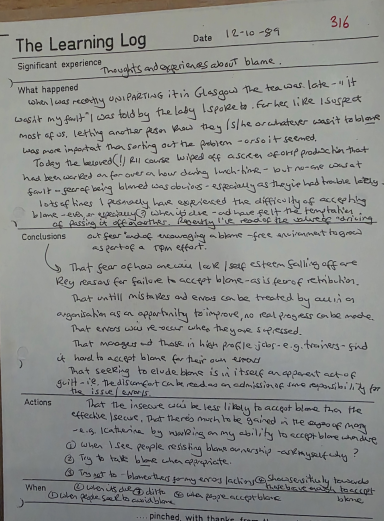 316
The Learning Log Date 12-10-89
Significant experience
Thoughts and experiences about blame.
What happened
When I was recently ON PARTING it in Glasgow the tea was late - "it
wasn't my fault" I was told by the lady I spoke to. For her, like I suspect
most of us, letting another person know they / s/he or whatever wasn't to blame
was more important than sorting out the problem - or so it seemed.
Today the beloved (!) course wiped off a screen of OHP production that
had been worked on for over an hour during lunch-time - but no-one was at
fault - fear of being blamed was obvious - especially as they've had trouble lately.
lots of times I personally have experienced the difficulty of accepting
blame - even or especially (?) when it's due - and have felt the temptation
of passing it off on others. Recently I've read of the value of "driving
Conclusions out fear" and of encouraging a blame-free environment to grow
as part of a TQM effort.
That fear of how one will look / self esteem falling off are
key reasons for failure to accept blame - as is fear of retribution.
That until mistakes and errors can be treated by all in a
organisation as an opportunity to improve, no real progress can be made.
That errors will re-occur when they are supressed.
That managers and those in high profile jobs - e.g. trainers - find
it hard to accept blame for their own errors
That seeking to elude blame is in itself an apparent act of
guilt - i.e. the discomfort can be read as an admission of some responsibility for
the issue / errors.
Actions That the insecure will be less likely to accept blame than the
effective / secure. That there's much to be gained in the eyes of many
- e.g. Katherine by working on my ability to accept blame when due
① When I see people resisting blame ownership - ask myself why?
② Try to take blame when appropriate.
③ Try not to - blame others for my errors ④ Show sensitivity towards
those who have to accept
blame
When ① when people seek to avoid blame ② when it's due ③ ditto ④ when people accept blame
....pinched, with thanks from